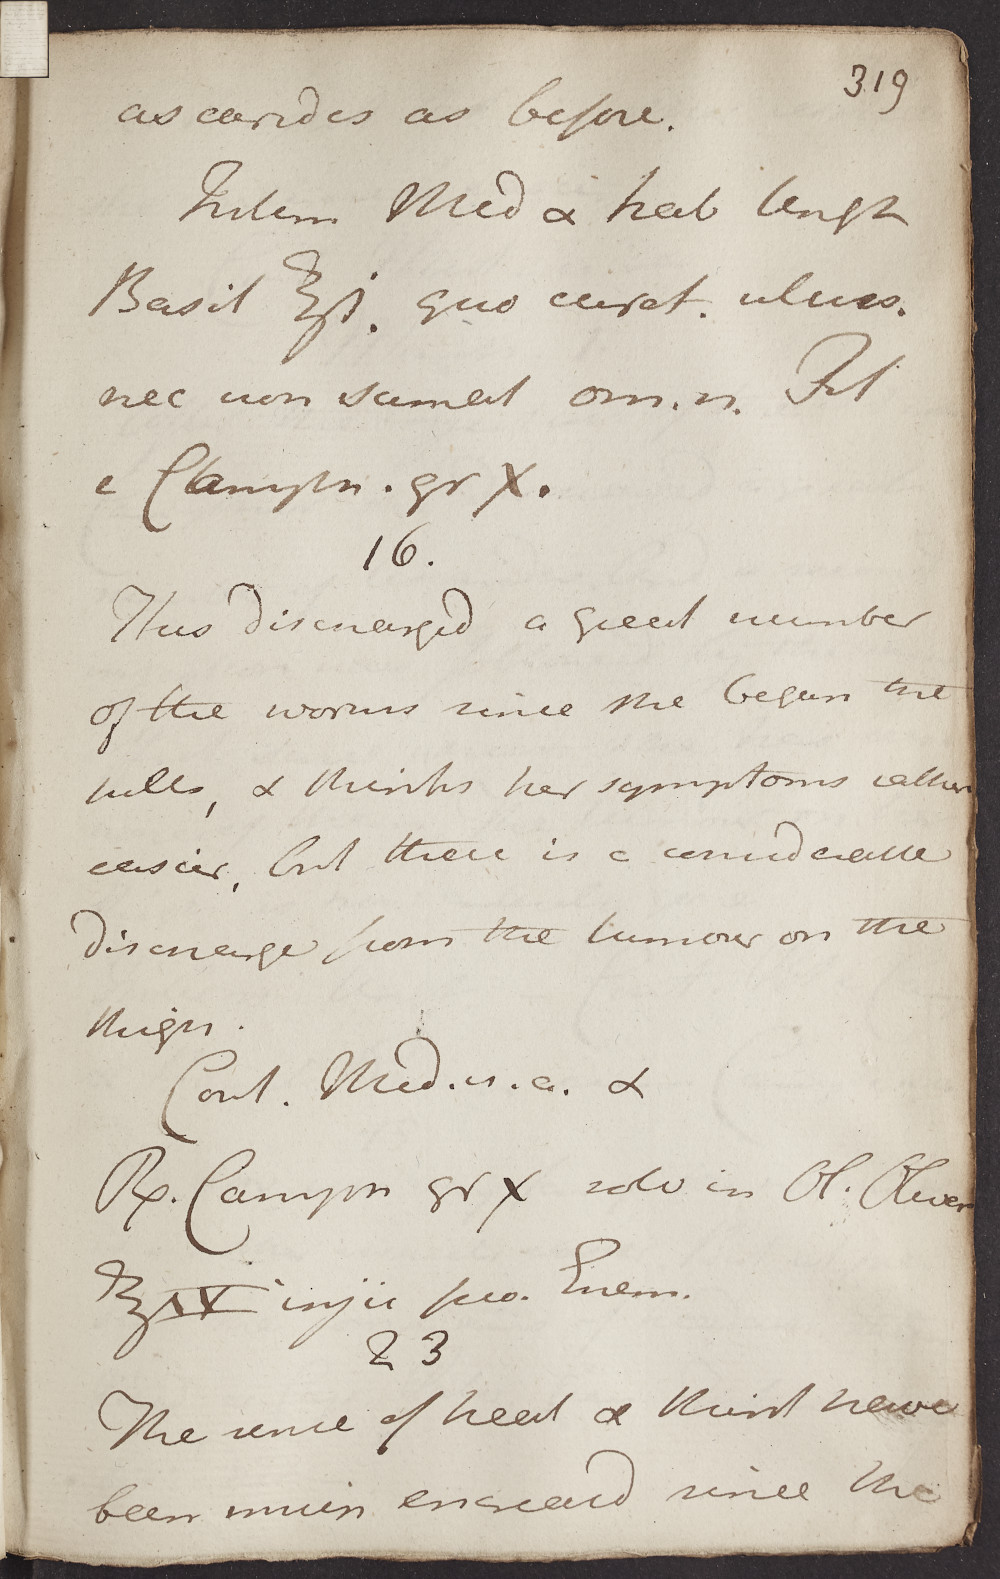 319
ascarides as before.
Intem Med & hab Ungt
Basil ℥ſs. quo curat. ulcus.
nec non sumat om. n. Pil
e Camph. gr X.
16.
Has discharged a great number
of the worms since she began the
pills, & thinks her symptoms rather
easier, but there is a considerable
discharge from the tumour on the
thigh.
Cont. Med. u. a. &
Rx. Camph gr X solv in Ol. Olivar
injic pro. Enem.
23
The sense of heat & thirst have
been much encreasd since the